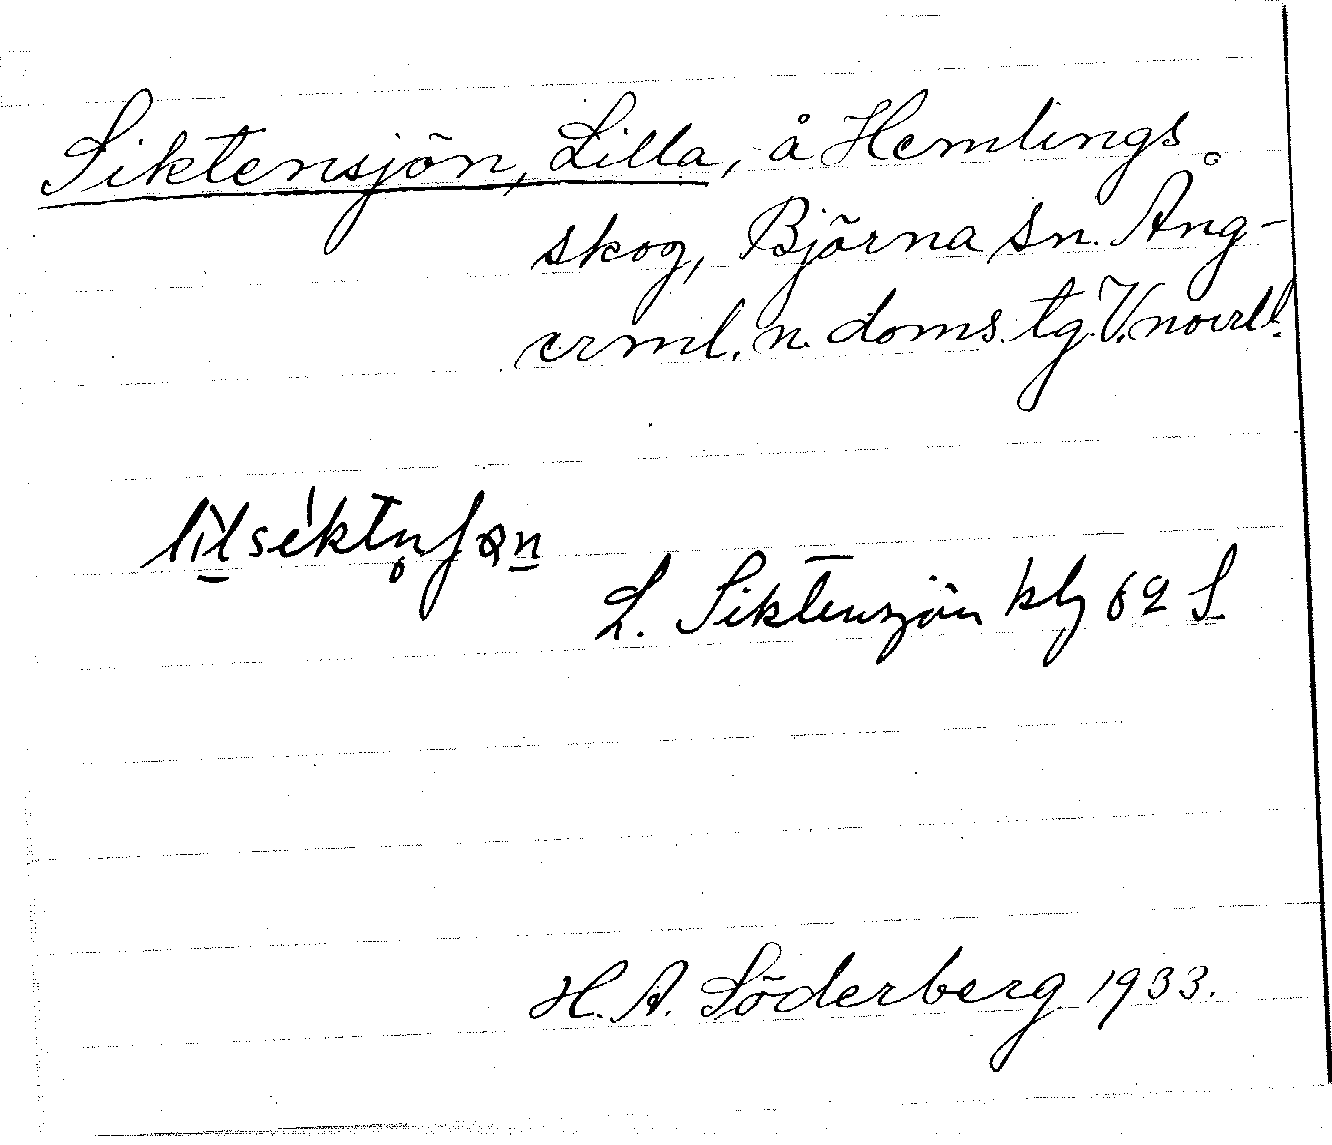 Siktensjön, Lilla, å Hemlings
skog, Björna sn. Ång-
erml. n. doms. tg. V.norrl.
L. Siktensjön kbl 62 S
H. A. Söderberg 1933.